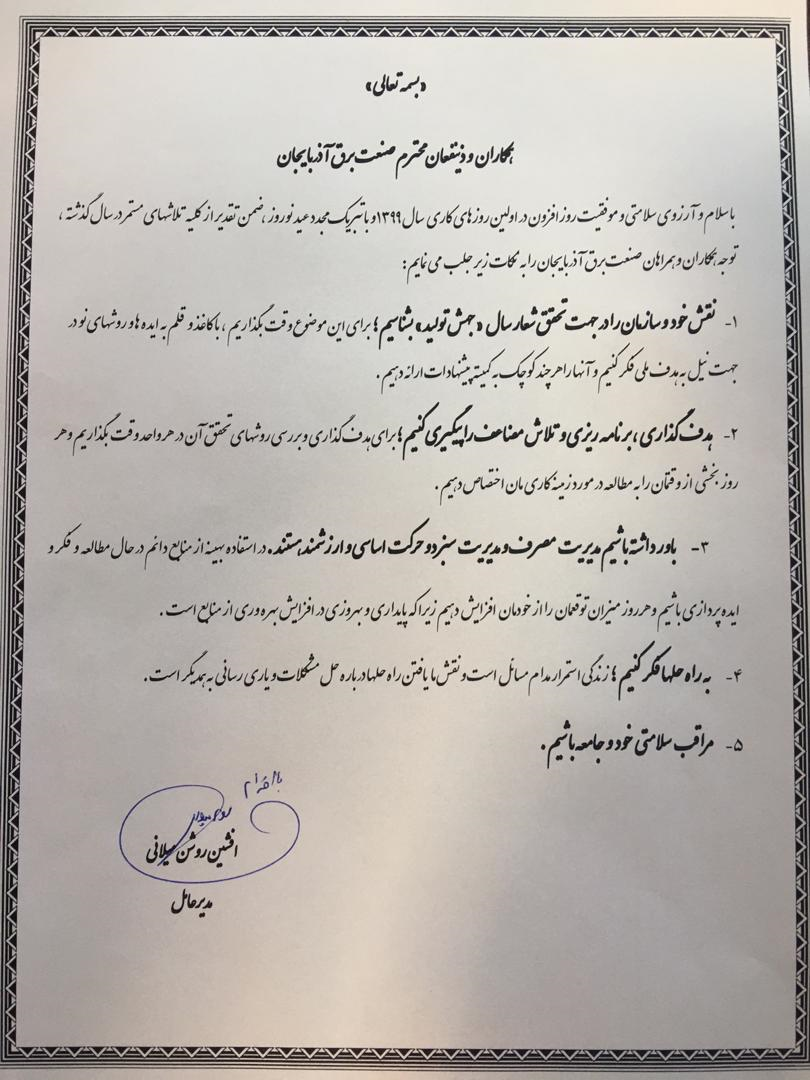 «بسمه تعالی»
همکاران و ذینفعان محترم صنعت برق آذربایجان
با سلام و آرزوی سلامتی و موفقیت روز افزون در اولین روزهای کاری سال ۱۳۹۹ و با تبریک مجدد عید نوروز ، ضمن تقدیر از کلیه تلاشهای مستمر در سال گذشته ،
توجه همکاران و همراهان صنعت برق آذربایجان را به نکات زیر جلب می نمایم :
۱- نقش خود و سازمان را در جهت تحقق شعار سال «جهش تولید» بشناسیم ؛ برای این موضوع وقت بگذاریم ، با کاغذ و قلم به ایده ها و روشهای نو در
جهت نیل به هدف ملی فکر کنیم و آنها را هر چند کوچک به کمیته پیشنهادات ارائه دهیم .
۲- هدف گذاری ، برنامه ریزی و تلاش مضاعف را پیگیری کنیم ؛ برای هدف گذاری و بررسی روشهای تحقق آن در هر واحد وقت بگذاریم و هر
روز بخشی از وقتمان را به مطالعه در مورد زمینه کاری مان اختصاص دهیم .
۳- باور داشته باشیم مدیریت مصرف و مدیریت سبز دو حرکت اساسی و ارزشمند هستند . در استفاده بهینه از منابع دائم در حال مطالعه و فکر و
ایده پردازی باشیم و هر روز میزان توقعمان را از خودمان افزایش دهیم زیرا که پایداری و بهروزی در افزایش بهره وری از منابع است .
۴- به راه حلها فکر کنیم ؛ زندگی استمرار مدام مسائل است و نقش ما یافتن راه حلها درباره حل مشکلات و یاری رسانی به همدیگر است .
۵- مراقب سلامتی خود و جامعه باشیم .
با احترام
افشین روشن میلانی
مدیرعامل